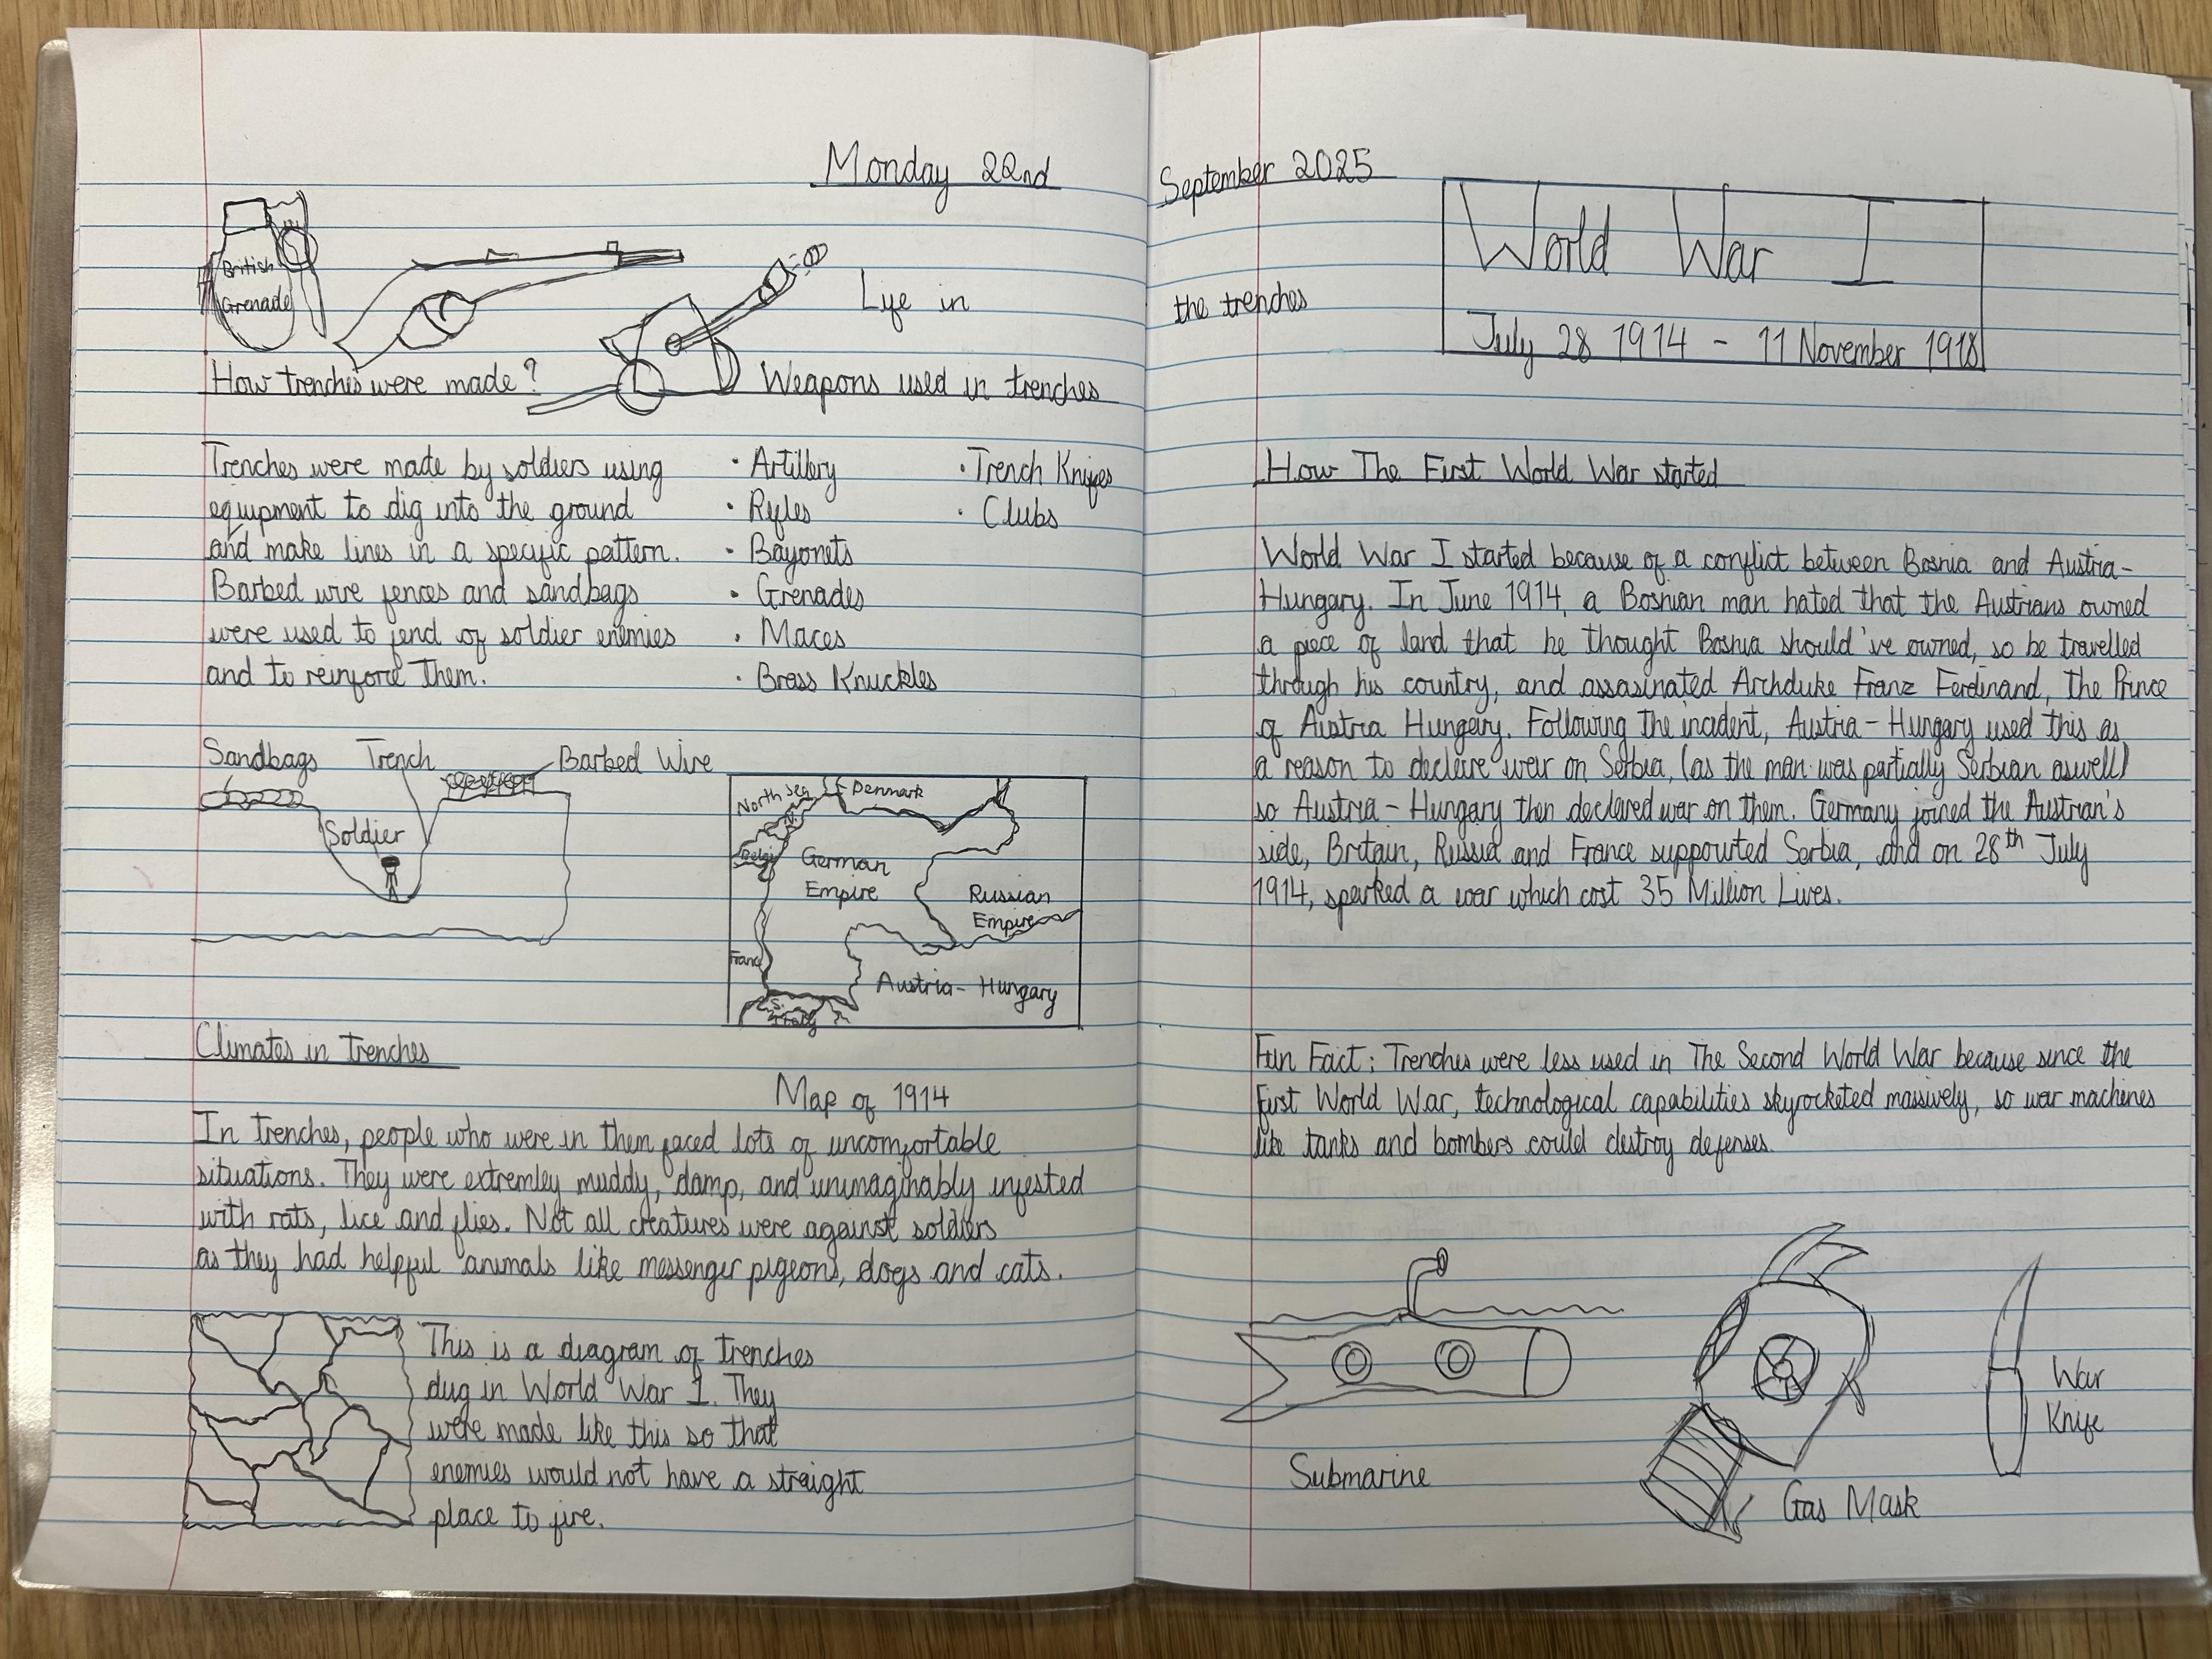 Monday 22nd September 2025
British
Grenade
Life in the trenches
How trenches were made?
Trenches were made by soldiers using
equipment to dig into the ground
and make lines in a specific pattern.
Barbed wire fences and sandbags
were used to fend of soldier enemies
and to reinforce them.
Weapons used in trenches
• Artillery
• Rifles
• Bayonets
• Grenades
• Maces
• Brass Knuckles
• Trench Knifes
• Clubs
Sandbags Trench Barbed Wire
Soldier
North Sea Denmark
N.
Belgi
German
Empire
Russian
Empire
France
Austria-Hungary
S.
Italy
Map of 1914
Climates in trenches
In trenches, people who were in them faced lots of uncomfortable
situations. They were extremley muddy, damp, and unimaginably infested
with rats, lice and flies. Not all creatures were against soldiers
as they had helpful animals like messenger pigeons, dogs and cats.
This is a diagram of trenches
dug in World War I. They
were made like this so that
enemies would not have a straight
place to fire.
World War I
July 28 1914 - 11 November 1918
How The First World War started
World War I started because of a conflict between Bosnia and Austria-
Hungary. In June 1914, a Bosnian man hated that the Austrians owned
a piece of land that he thought Bosnia should've owned, so he travelled
through his country, and assasinated Archduke Franz Ferdinand, The Prince
of Austria Hungary. Following the incident, Austria-Hungary used this as
a reason to declare war on Serbia, (as the man was partially Serbian aswell)
so Austria-Hungary then declared war on them. Germany joined the Austrian's
side, Britain, Russia and France suppourted Serbia, and on 28th July
1914, sparked a war which cost 35 Million Lives.
Fun Fact: Trenches were less used in The Second World War because since the
First World War, technological capabilities skyrocketed massively, so war machines
like tanks and bombers could destroy defenses.
Submarine
Gas Mask
War
Knife